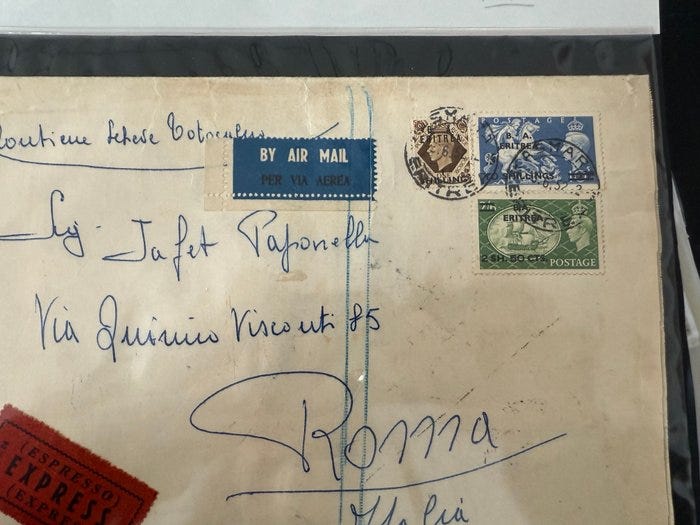 Contiene lettere
BY AIR MAIL
PER VIA AEREA
B. A.
ERITREA
SHILLINGS
POSTAGE
B. A.
ERITREA
SHILLINGS
B.A.
ERITREA
2 SH. 50 CTS.
POSTAGE
ERITREA
Sig. Jafet Paponella
Via Quirino Visconti 85
Roma
Italia
(ESPRESSO)
EXPRESS